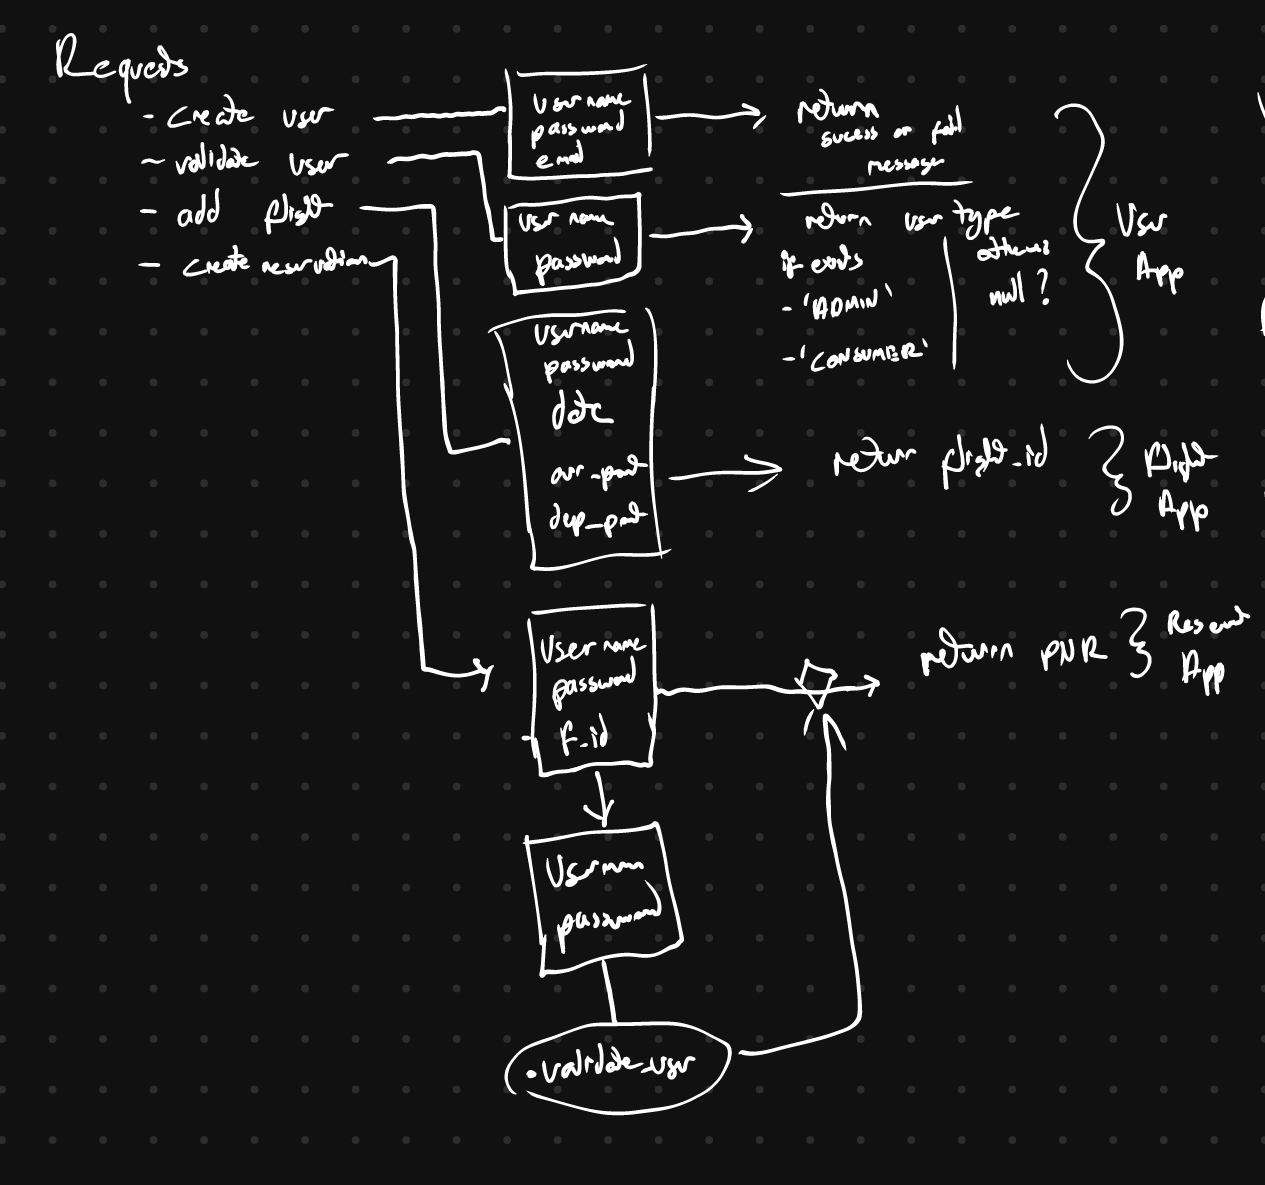 Requests
- create user
- validate user
- add flight
- create reservation
username
password
email
return
sucess or fail
message
username
password
return user type
if exists
- 'ADMIN'
- 'CONSUMER'
null ?
User
App
username
password
date
arr_port
dep_port
return flight_id
flight
App
Username
password
f_id
return PNR
App
Username
password
• validate_user